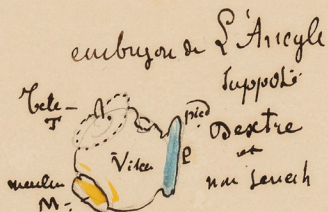 embryon de L'Ancyle
supposé
Dextre
et
non senech
Tete
T
pied
P
Visc
manteau
M